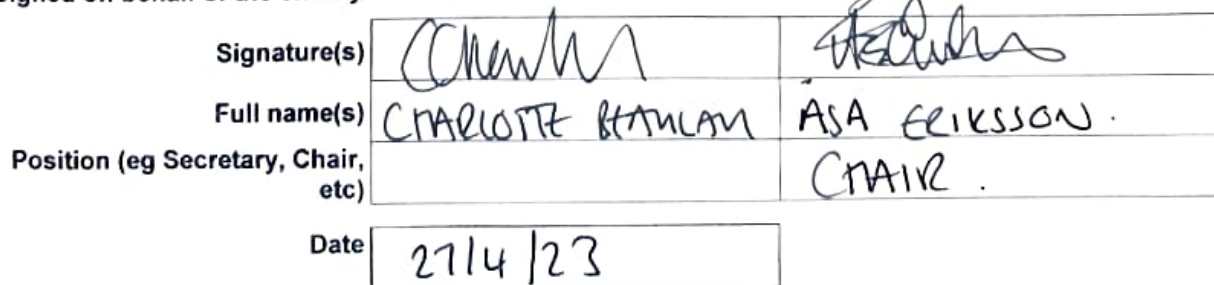 Signature(s)
Full name(s) CHARLOTTE ASA ERIKSSON.
Position (eg Secretary, Chair,
etc) CHAIR.
Date 27/4/23